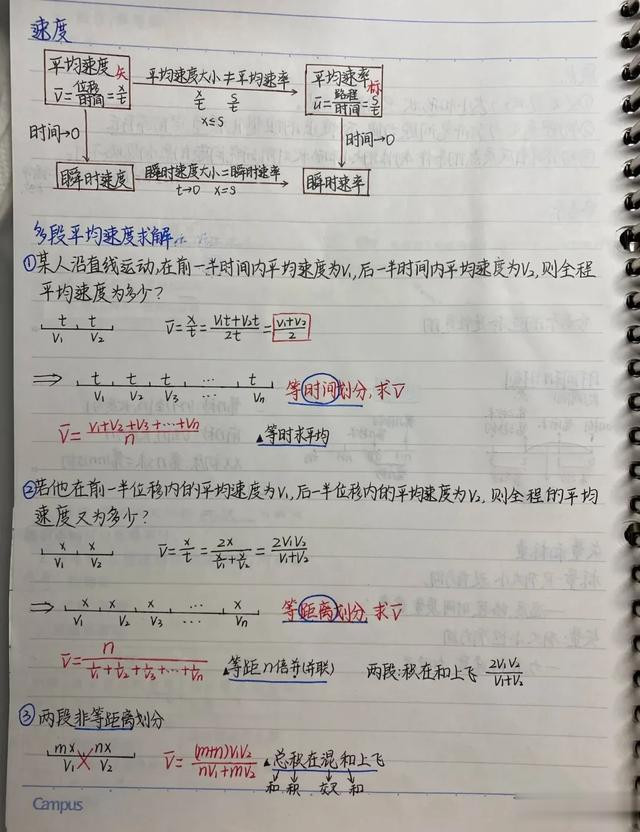 速度
平均速度 矢 平均速度大小≠平均速率 平均速率 标
v̄=位移/时间=x/t x/t s/t ū=路程/时间=s/t
x≤s
时间→0 时间→0
瞬时速度 瞬时速度大小=瞬时速率 瞬时速率
t→0 x=s
多段平均速度求解
①某人沿直线运动,在前一半时间内平均速度为V₁,后一半时间内平均速度为V₂,则全程
平均速度为多少?
t t
V₁ V₂ v̄=x/t=(V₁t+V₂t)/2t=(V₁+V₂)/2
⇒ t t t ... t 等时间划分,求v̄
V₁ V₂ V₃ ... Vn
v̄=(V₁+V₂+V₃+…+Vn)/n ▲等时求平均
②若他在前一半位移内的平均速度为V₁,后一半位移内的平均速度为V₂,则全程的平均
速度又为多少?
x x
V₁ V₂ v̄=x/t=2x/(x/V₁+x/V₂)=2V₁V₂/(V₁+V₂)
⇒ x x x ... x 等距离划分,求v̄
V₁ V₂ V₃ ... Vn
v̄=n/(1/V₁+1/V₂+1/V₃+…+1/Vn) ▲等距n倍并(并联) 两段:积在和上飞 2V₁V₂/(V₁+V₂)
③两段非等距离划分
mx nx
V₁ V₂ v̄=(m+n)V₁V₂/(nV₁+mV₂) ▲总积在混和上飞
和 积 交叉 和
Campus